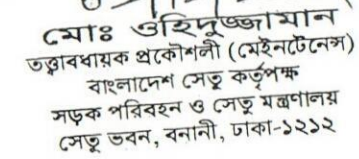 মোঃ ওহিদুজ্জামান
তত্ত্বাবধায়ক প্রকৌশলী (মেইনটেনেন্স)
বাংলাদেশ সেতু কর্তৃপক্ষ
সড়ক পরিবহন ও সেতু মন্ত্রণালয়
সেতু ভবন, বনানী, ঢাকা-১২১২